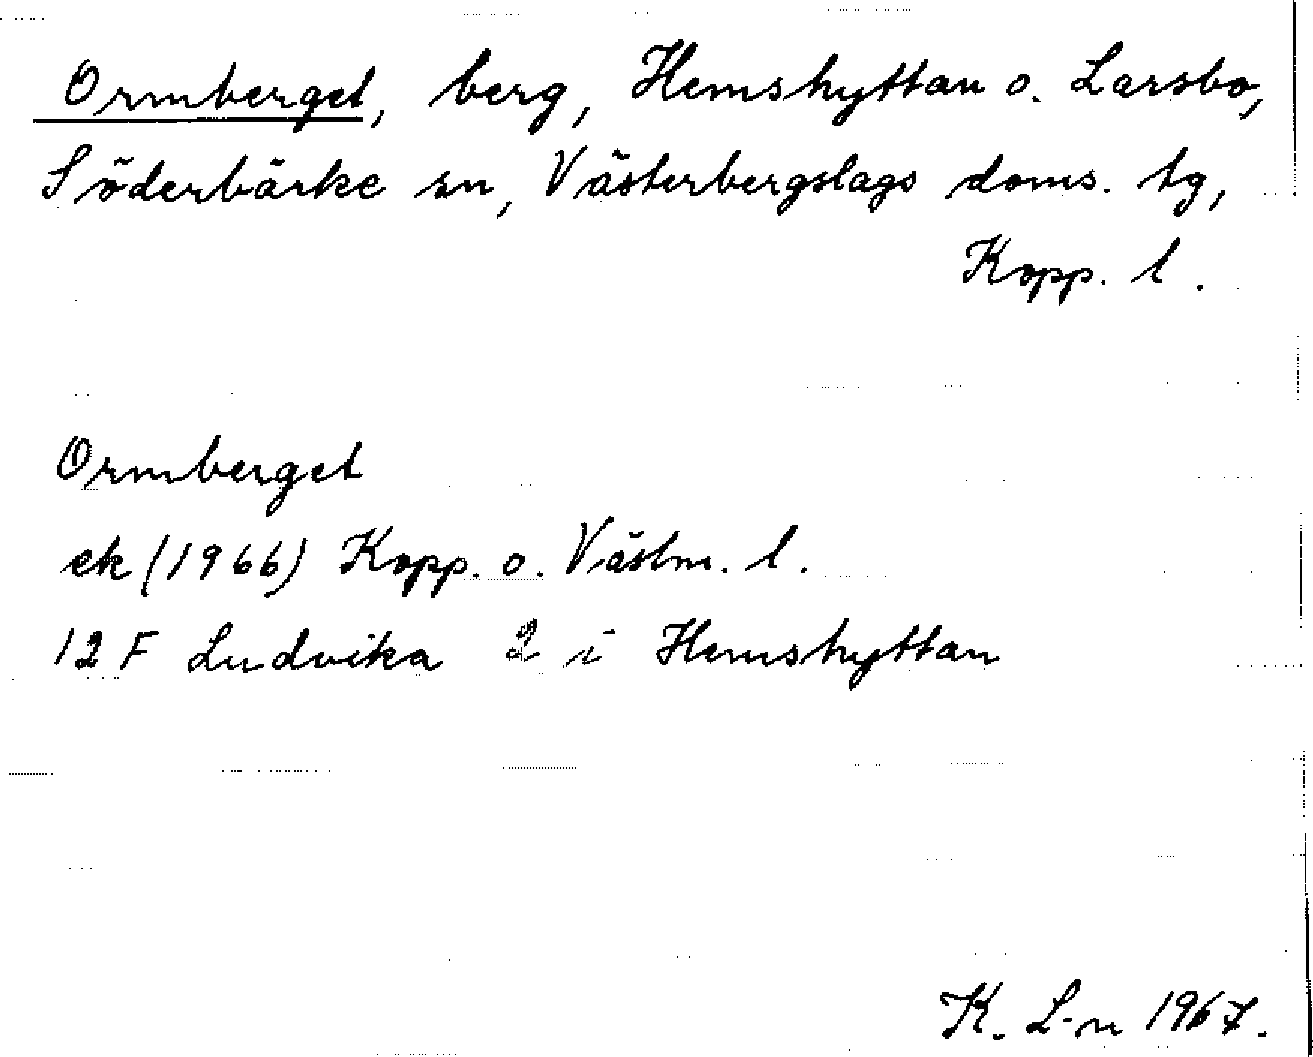 Ormberget, berg, Hemshyttan o. Larsbo,
Söderbärke sn, Västerbergslags doms. tg,
Kopp. l.
Ormberget
ek (1966) Kopp. o. Västm. l.
12 F Ludvika 2 i Hemshyttan
K. L-n 1967.